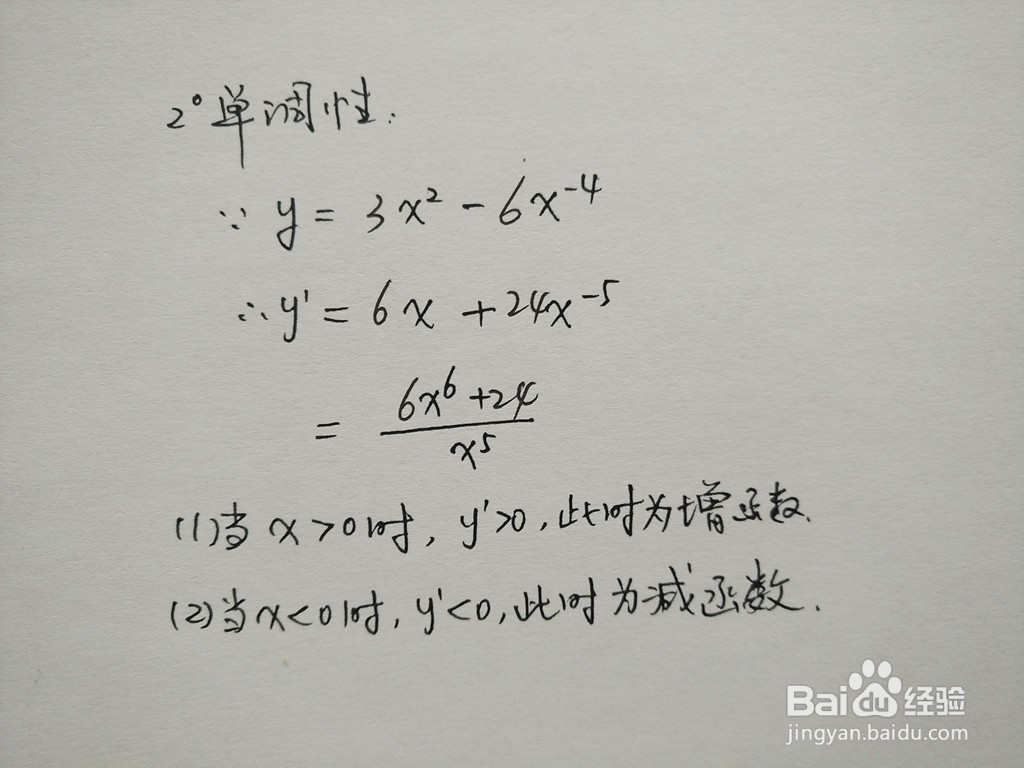 2° 单调性.
∵ y = 3x² - 6x⁻⁴
∴ y' = 6x + 24x⁻⁵
= (6x⁶ + 24) / x⁵
(1)当 x > 0 时, y'>0, 此时为增函数.
(2)当 x < 0 时, y'<0, 此时为减函数.
Baidu经验
jingyan.baidu.com